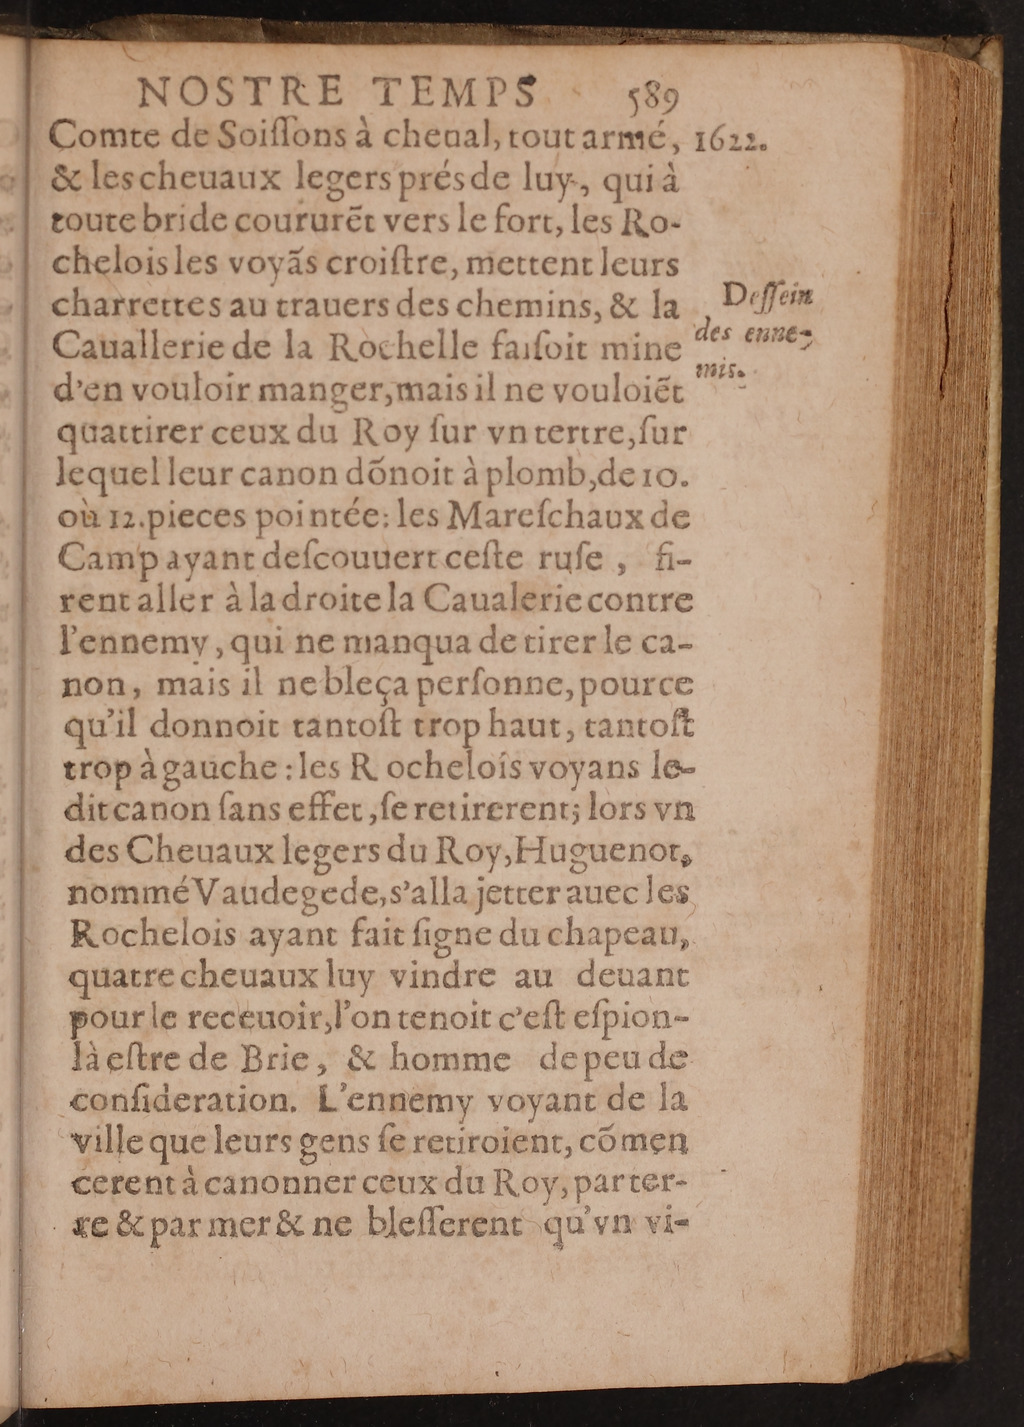 NOSTRE TEMPS 589
Comte de Soiſſons à cheual, tout armé, 1622.
& les cheuaux legers prés de luy, qui à
toute bride coururẽt vers le fort, les Ro-
chelois les voyãs croiſtre, mettent leurs
charrettes au trauers des chemins, & la
Deſſein
des enne-
mis.
Cauallerie de la Rochelle faiſoit mine
d'en vouloir manger, mais il ne vouloiẽt
quattirer ceux du Roy ſur vn tertre, ſur
lequel leur canon dõnoit à plomb, de 10.
où 12. pieces pointée: les Mareſchaux de
Camp ayant deſcouuert ceſte ruſe, fi-
rent aller à la droite la Caualerie contre
l'ennemy, qui ne manqua de tirer le ca-
non, mais il ne bleça perſonne, pource
qu'il donnoit tantoſt trop haut, tantoſt
trop à gauche : les R ochelois voyans le-
dit canon ſans effet, ſe retirerent; lors vn
des Cheuaux legers du Roy, Huguenot,
nommé Vaudegede, s'alla jetter auec les
Rochelois ayant fait ſigne du chapeau,
quatre cheuaux luy vindre au deuant
pour le receuoir, l'on tenoit c'eſt eſpion-
là eſtre de Brie, & homme de peu de
conſideration. L'ennemy voyant de la
ville que leurs gens ſe retiroient, cõmen
cerent à canonner ceux du Roy, par ter-
re & par mer & ne bleſſerent qu'vn vi-